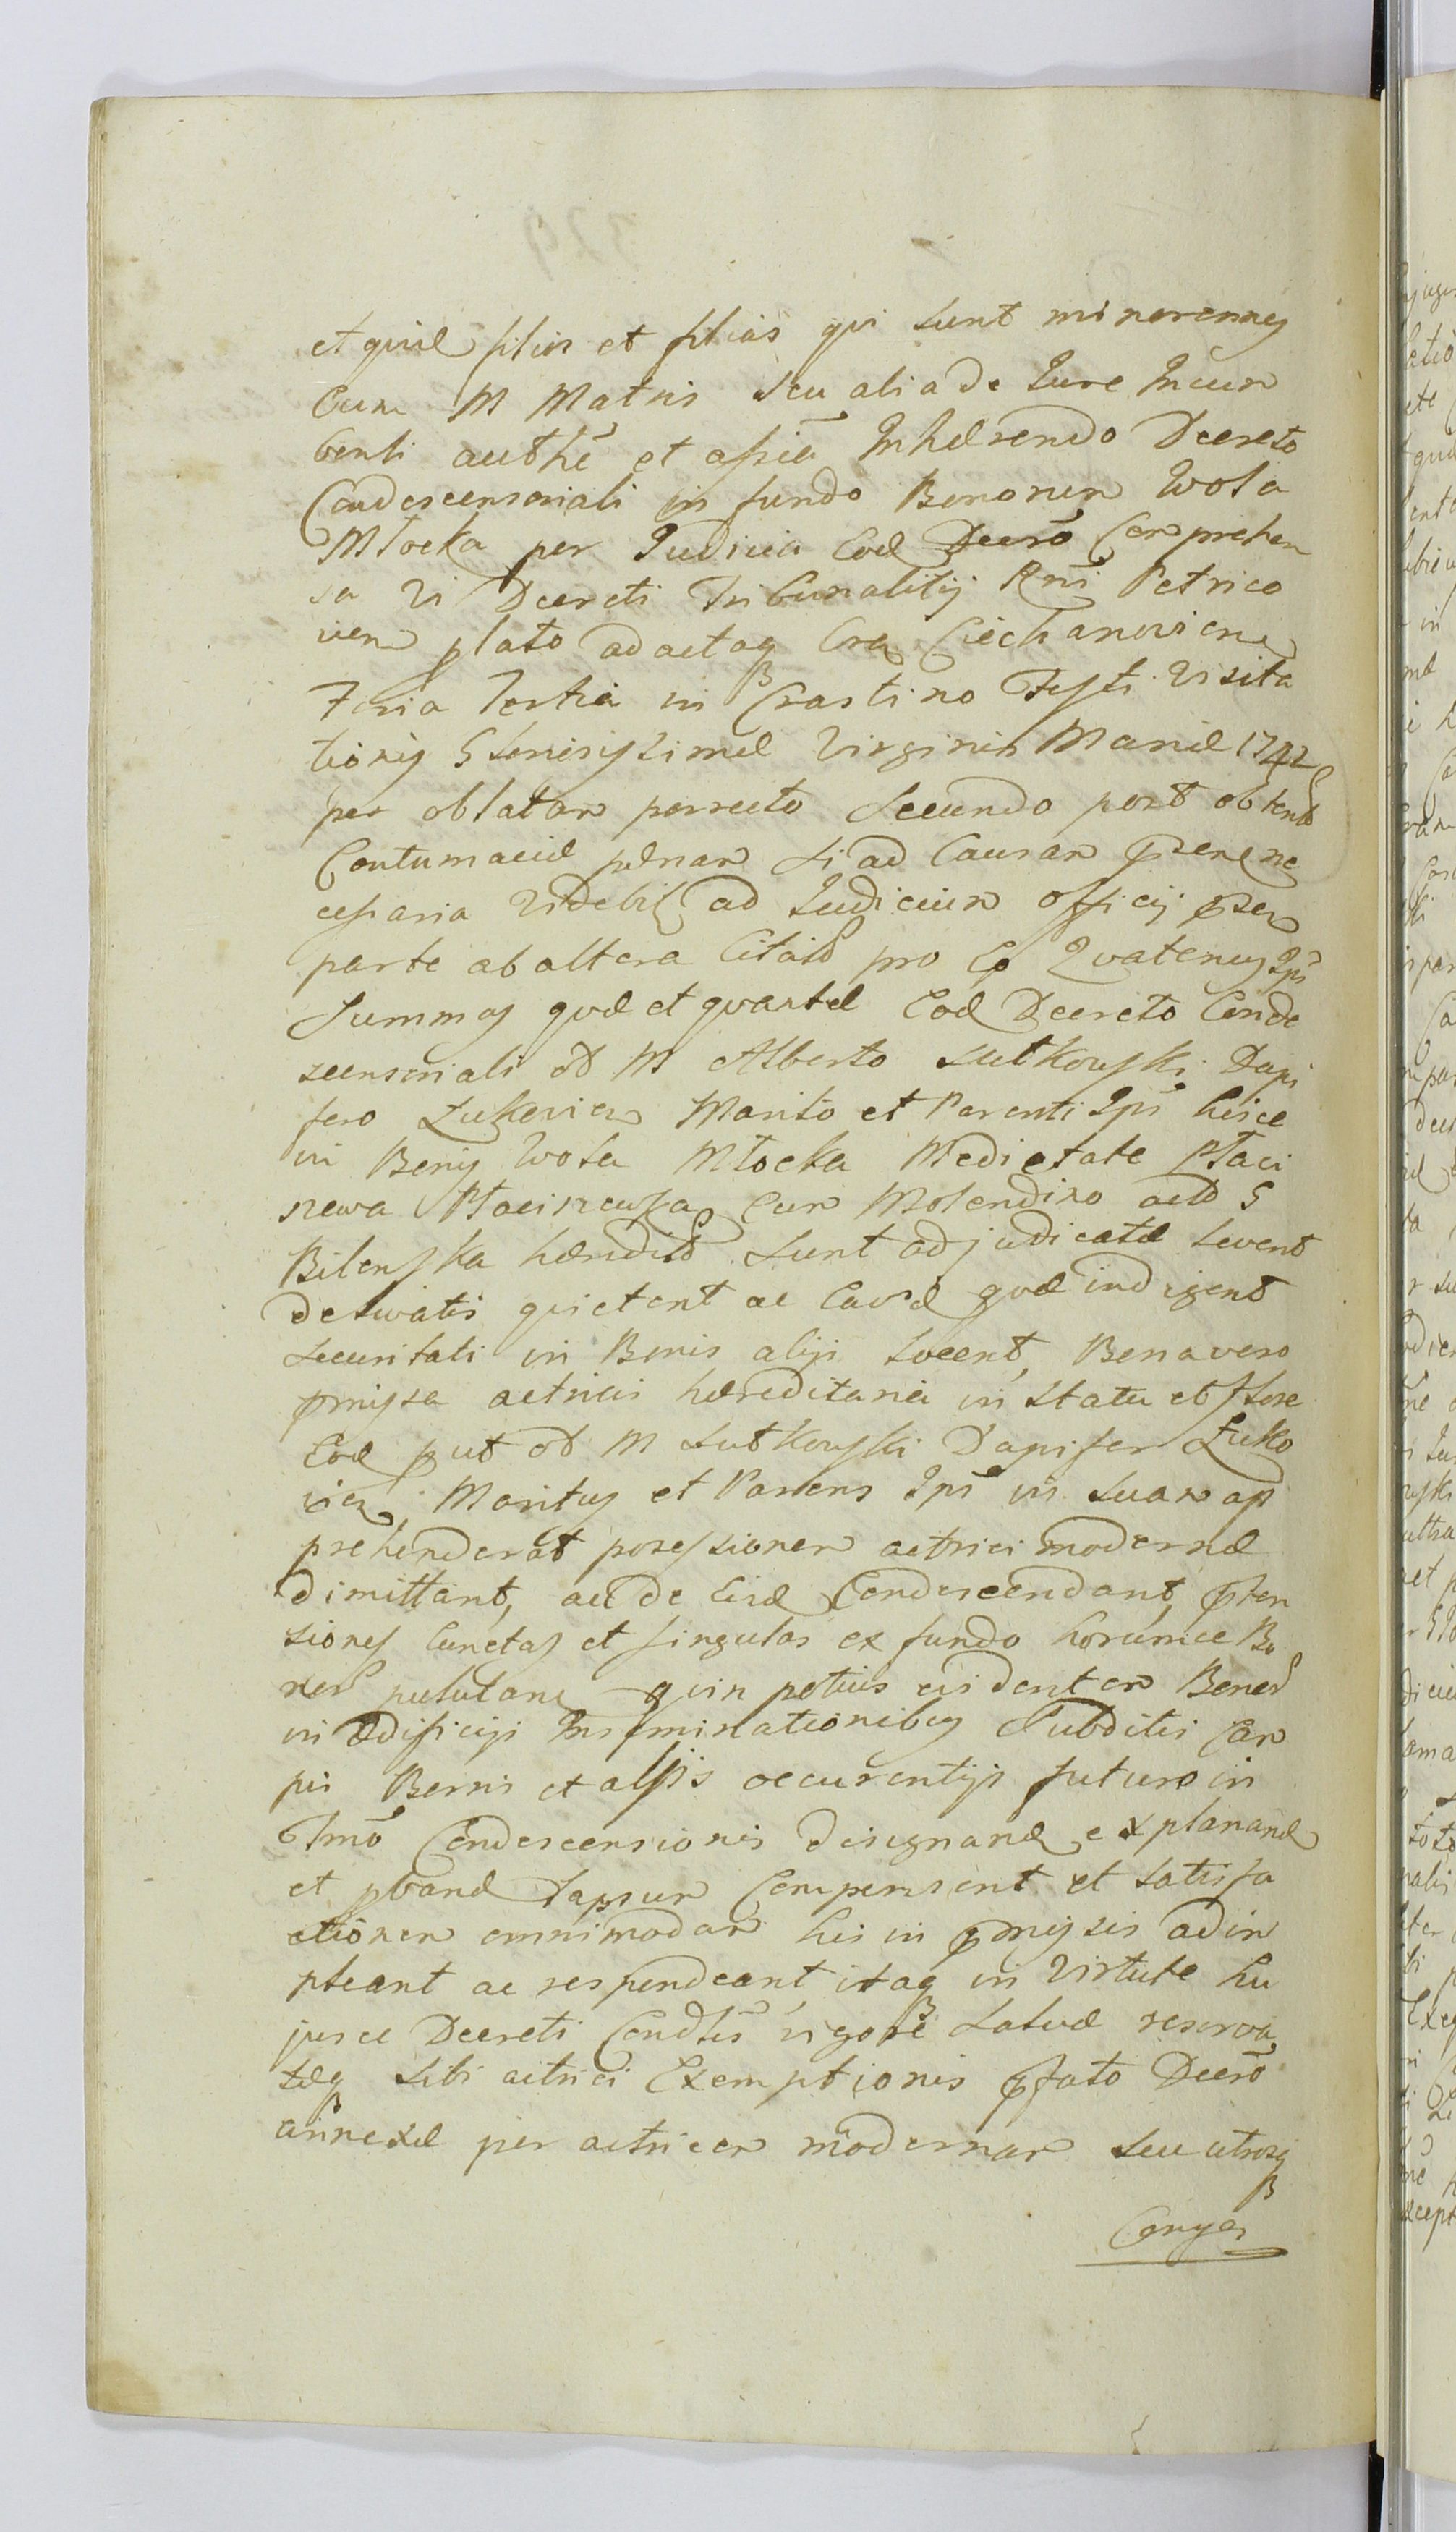 et gvid filios et filias qvi sunt minorenney
Cum M Matris seu alia de Jure Incum
benti authē et assīa Inhærendo Decreto
Condescensoriali in fundo Bonorum Wola
Młocka per Judicia Eod Decrō Comprehen
sa Vi Decreti Tribunalitij Rnī Petrico
vien plato ad actaq Cra Ciechanovien
Feria Tertia in Crastino Festi Visita
tionis Slorissimæ Virginis Mariæ 1742
per oblatam porrecto secundo post obtent
Contumaciæ pænam si ad Causam ne
cessaria Videbit ad Judicium officij
parte ab altera Citato pro Eo Qvatenus Ipī
Summas qvæ et qvartæ Eod Decreto Conde
scensoriali ol M Alberto Lutkowski Dapi
fero Łukovien Marito et Parenti Ipī hisce
in Bonis Wola Młocka Medietate Płaci
szewa Płaciszewska Cum Molendino act G
Bilenska hæredit sunt adjudicatæ Levent
delevatis qvietent ac Cavd qvæ indigent
securitati in Bonis alijs locent, Bona vero
pmissa actricis hæreditaria in statu et flore
Eod put ol M Lutkowski Dapifer Łuko
vien Maritus et Parens Ipī in suam ap
prehenderat possessionem actrici modernæ
dimittant, ac de Eisd Condescendant, pten
siones Cunctas et singulas ex fundo horumce Bo
nor pululan qvin potius evidentem Bonor
in Ædificijs Inseminationibus Subditis Cam
pis Bonis et alijs occurentijs futuro in
Tmō Condescensionis designand explanand
et pband Lapsum Compensent et satisfa
ctionem omnimodam his in pmissis adim
pleant ac respondeant itaq in Virtute hu
jusce Decreti Condlis vigore salvæ reserva
tæq sibi actrici Exemptionis pfato Decrō
annexæ per actricem modernam seu utrosq
Conyes